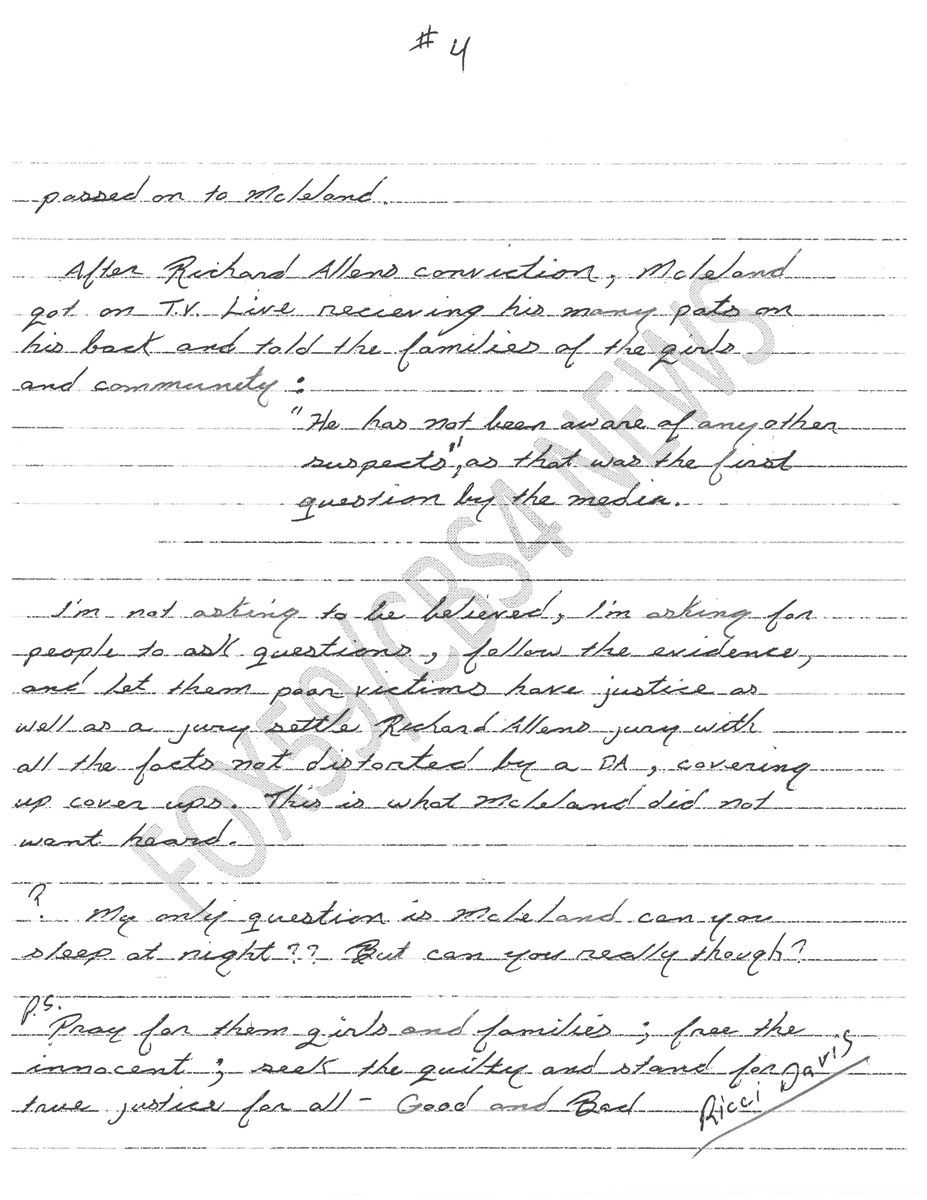 # 4
passed on to McLeland.
After Richard Allens conviction, McLeland
got on T.V. Live recieving his many pats on
his back and told the families of the girls
and community :
"He has not been aware of any other
suspects", as that was the first
question by the media.
I'm not asking to be believed, I'm asking for
people to ask questions, follow the evidence,
and let them poor victims have justice as
well as a jury settle Richard Allens jury with
all the facts not distorted by a DA, covering
up cover ups. This is what McLeland did not
want heard.
? My only question is McLeland can you
sleep at night?? But can you really though?
P.S.
Pray for them girls and families ; free the
innocent ; seek the guilty and stand for
true justice for all - Good and Bad
Ricci Davis
FOX59/CBS4 NEWS